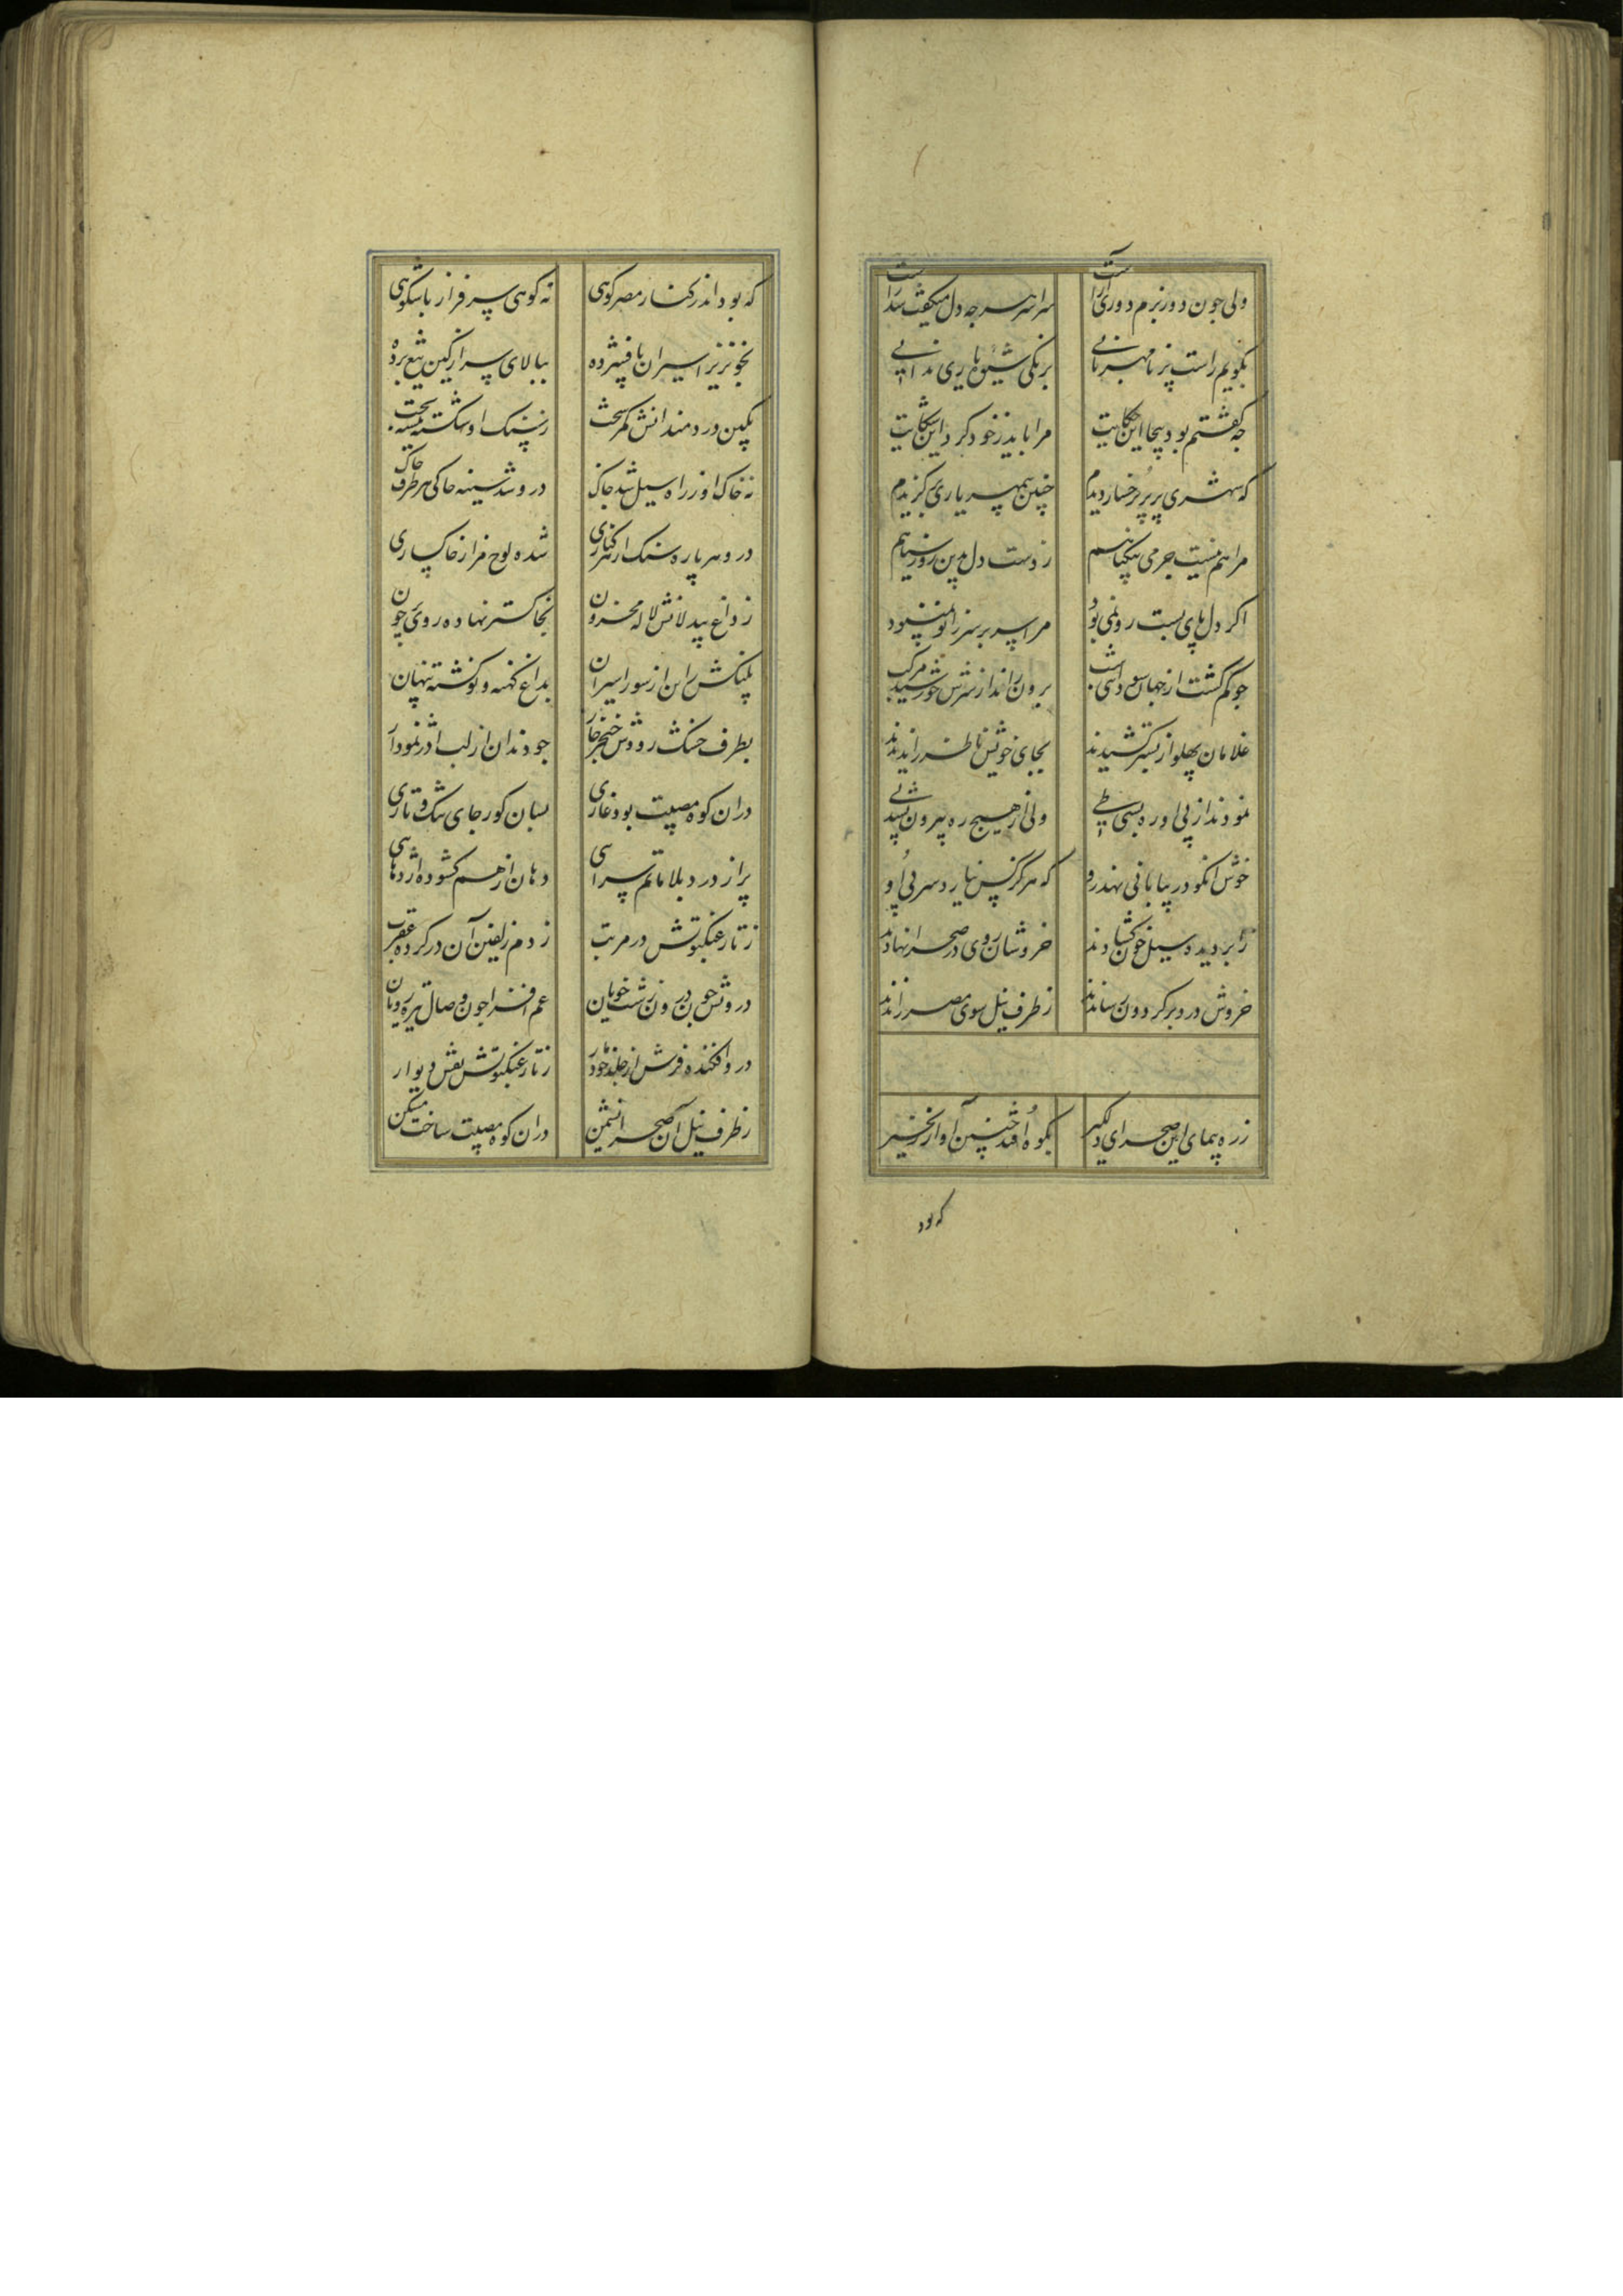 ولی چون دور بزم دوری آراست سراسر هر چه دل میگفت شد راست
بگویم راست پر نامهربانی برنگی شیوهٔ یاری ندانی
چه گفتم بود بیجا این حکایت مرا باید ز خود کرد این شکایت
که شهری پر پری رخسار دیدم چنین بیمهر یاری برگزیدم
مرا هم نیست جرمی بیگناهم ز دست دل بدین روز سیاهم
اگر دل پای بست رو نمی بود مرا سر بر سر زانو نمی بود
چو گم گشت از جهان سوی داشت برون راند از سرش خورشید مرکب
غلامان پهلو از بستر کشیدند بجای خویش ناظر را ندیدند
نمودند از پی او ره بسی طی ولی از هیچ ره بیرون نشد پی
خوش آنکو در بیابانی نهد رو که هرگز کس نیارد سر پی او
ز ابر دیده سیل خون گشادند خروشان روی در صحرا نهادند
خروش درد بر گردون رساندند ز طرف نیل سوی مصر راندند
ز ره پیمای این صحرای دلگیر بکوه افتد چنین آواز زنجیر
که بود
که بود اندر کنار مصر کوهی نه کوهی سرفراز باشکوهی
بخونریز اسیران پا فشرده ببالای سر از کین تیغ برده
بکین دردمندانش کمر سخت ز سنگ او شکسته شیشهٔ بخت
نه خاک او ز راه سیل شد چاک درو شد سینه چاکی هر طرف خاک
درو هر پاره سنگ از هر کناری شده لوح مزار خاکساری
ز داغ بیدلانش لاله محزون بخاکستر نهاده روی چون
پلنگش را تن از سور اسیران بداغ کهنه و نو گشته پنهان
بطرف خشک رودش خنجر خار چو دندان از لب اژدر نمودار
در آن کوه مصیبت بود غاری بسان گور جای تنگ و تاری
پر از درد و بلا ماتم سرایی دهان از هم گشوده اژدهایی
ز تار عنکبوتش در مرتب ز دم زلفین آن در کرده عقرب
درونش چون درون زشت خویان غم افزا چون وصال تیره رویان
درو افکنده فرش از جلد خود مار ز تار عنکبوتش نقش دیوار
ز طرف نیل آن صحرا نشیمن در آن کوه مصیبت ساخت مسکن